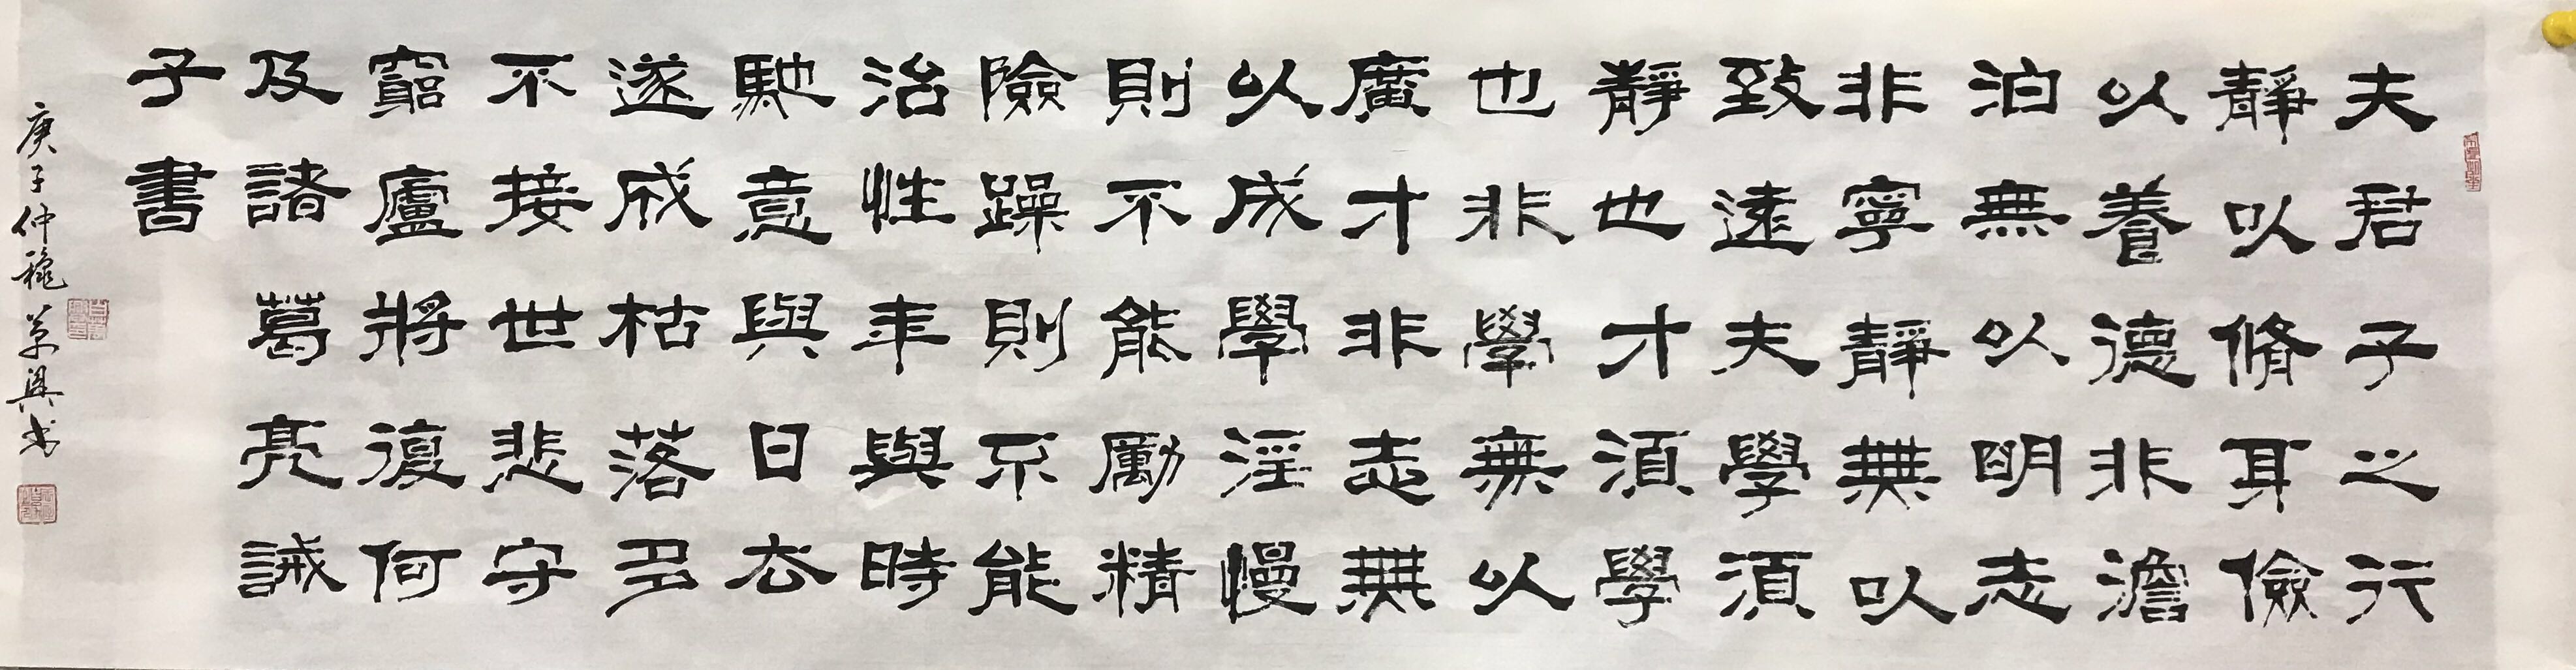 夫君子之行
靜以脩身儉
以養德非澹
泊無以明志
非寧靜無以
致遠夫學須
靜也才須學
也非學無以
廣才非志無
以成學淫慢
則不能勵精
險躁則不能
治性年與時
馳意與日去
遂成枯落多
不接世悲守
窮廬將復何
及諸葛亮誡
子書
庚子仲穐興书